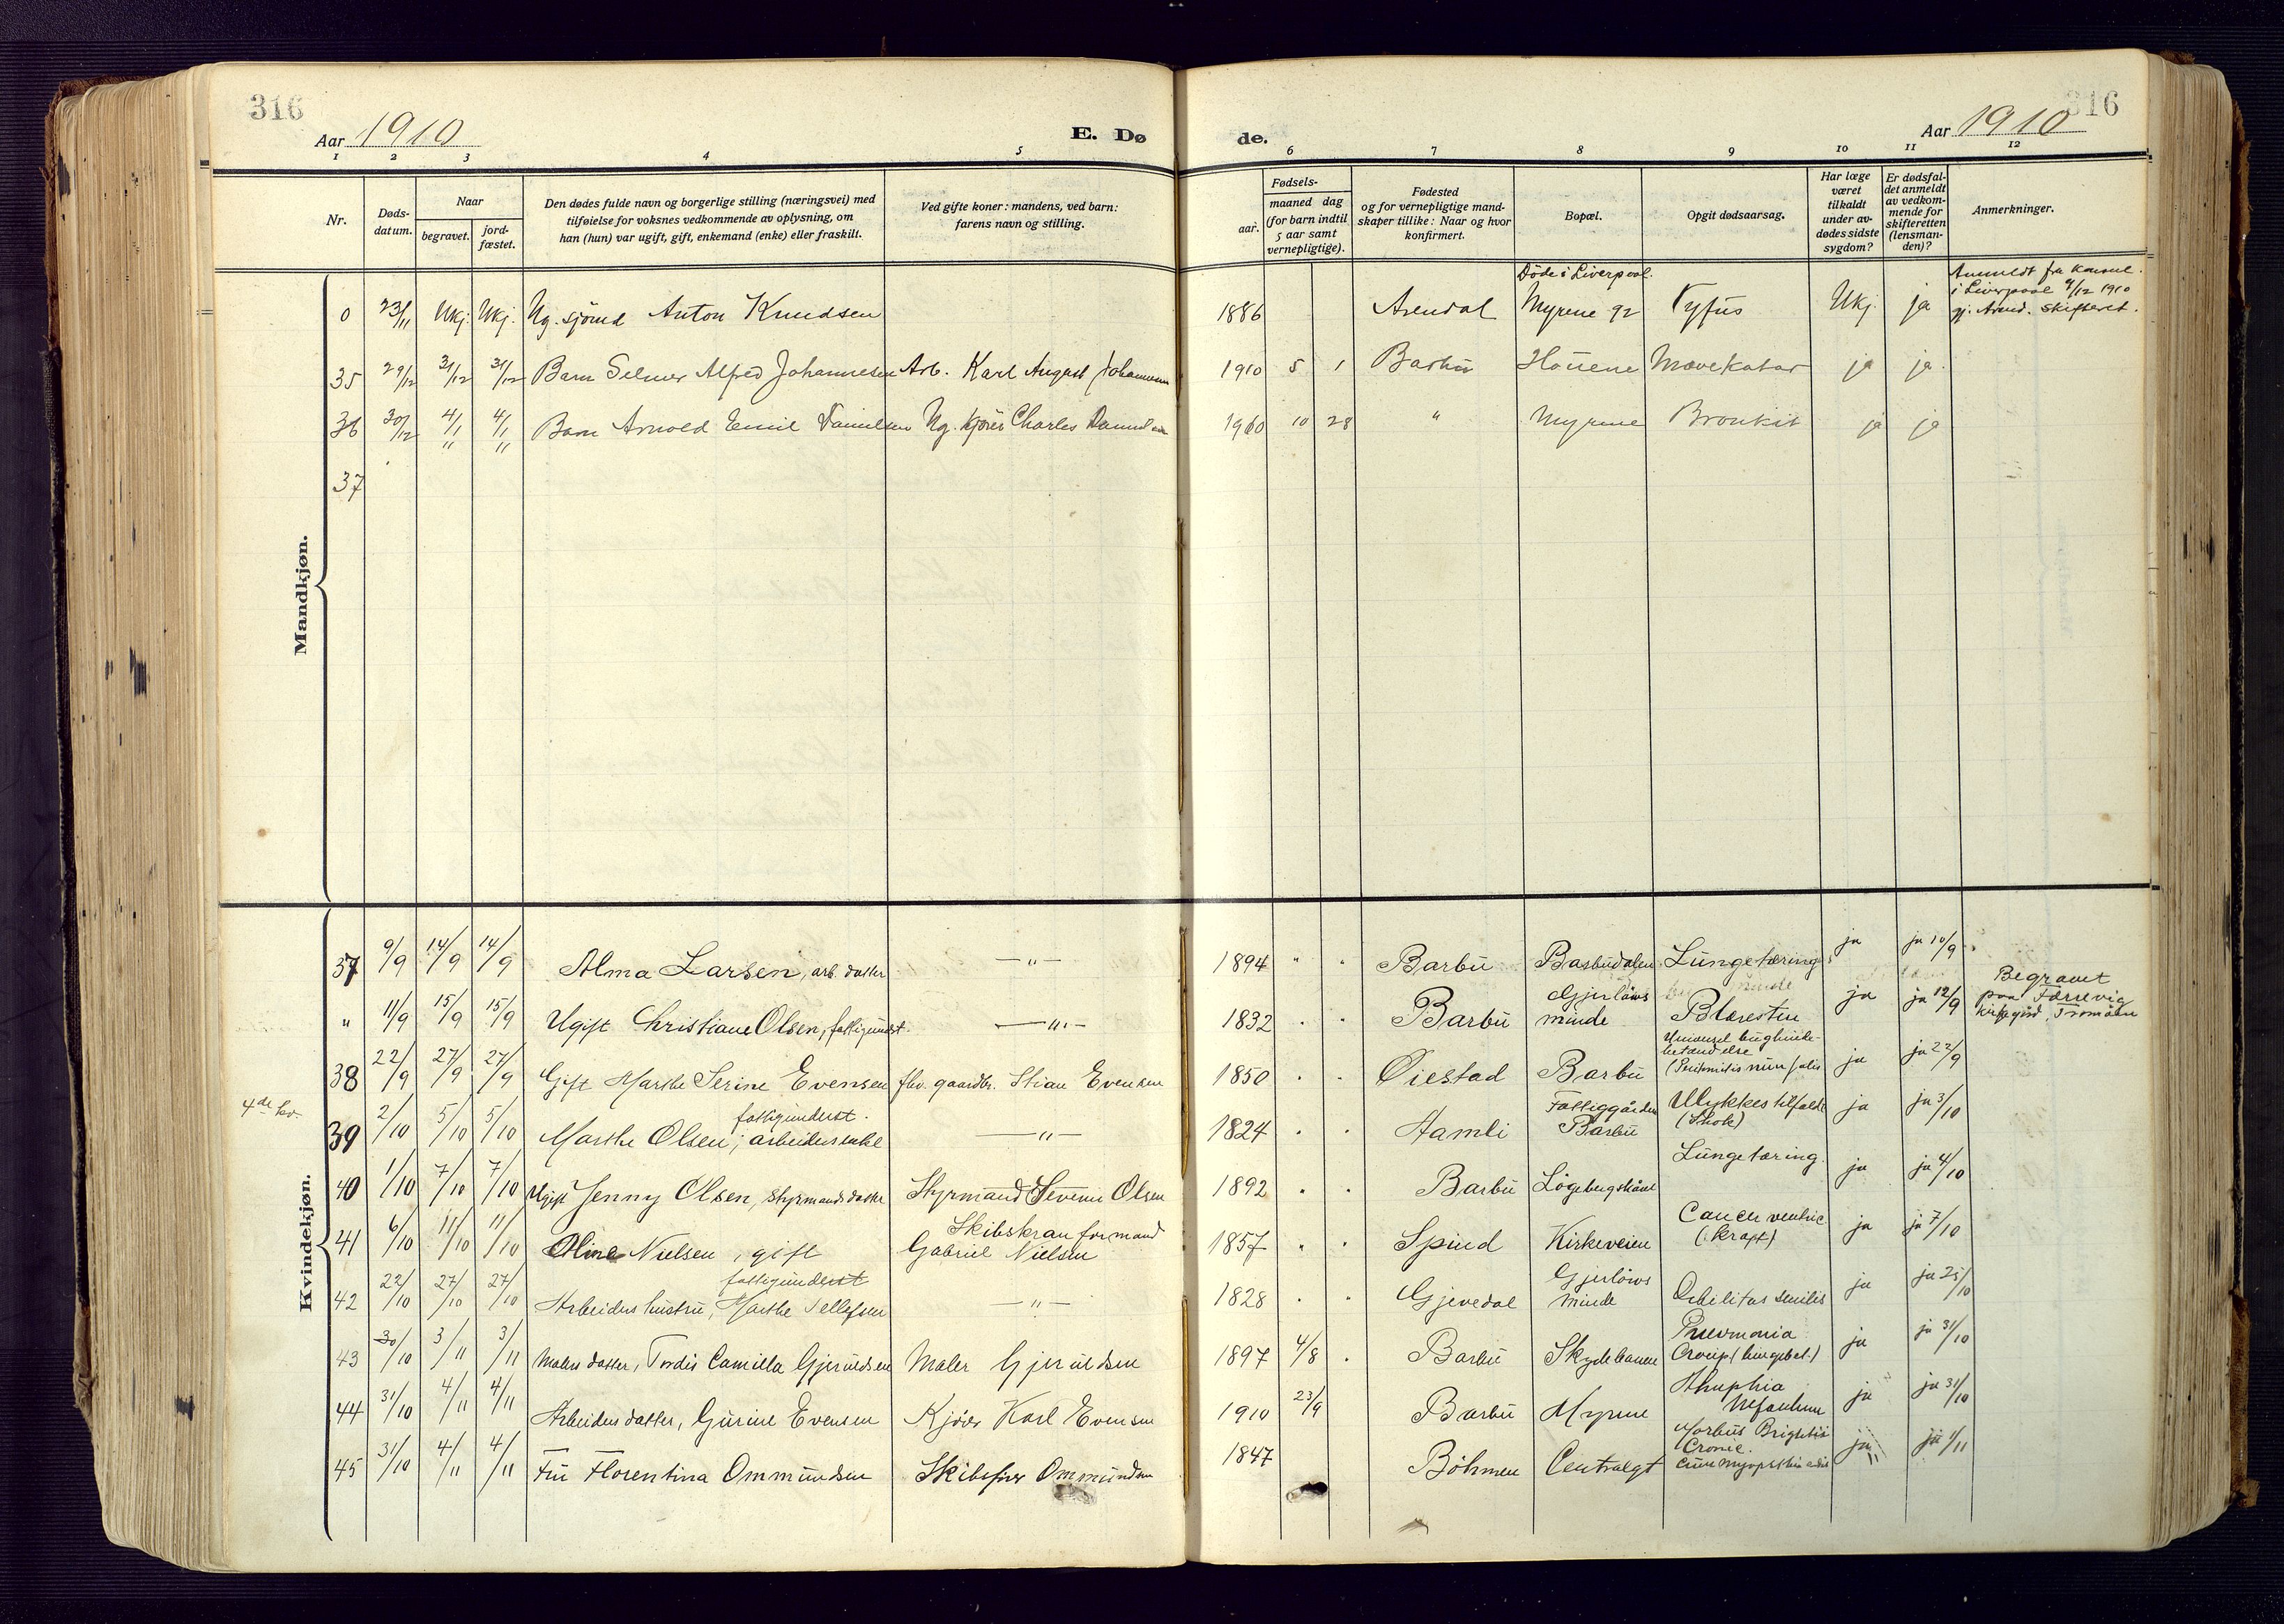 316
Aar 1910
E. Dø
de.
Aar 1910
316
1 2 3 4 5 6 7 8 9 10 11 12
Nr.
Døds-
datum.
Naar
begravet.
jord-
fæstet.
Den dødes fulde navn og borgerlige stilling (næringsvei) med
tilføielse for voksnes vedkommende av oplysning, om
han (hun) var ugift, gift, enkemand (enke) eller fraskilt.
Ved gifte koner: mandens, ved barn:
farens navn og stilling.
Fødsels-
aar.
maaned dag
(for barn indtil
5 aar samt
vernepligtige).
Fødested
og for vernepligtige mand-
skaper tillike: Naar og hvor
konfirmert.
Bopæl.
Opgit dødsaarsag.
Har læge
været
tilkaldt
under av-
dødes sidste
sygdom?
Er dødsfal-
det anmeldt
av vedkom-
mende for
skifteretten
(lensman-
den)?
Anmerkninger.
Mandkjøn.
0 23/11 Ukj. Ukj. Ug. sjømd Anton Knudsen 1886 Arendal Døde i Liverpool. Myrene 92 Tyfus Ukj. ja Anmeldt fra Konsul. i Liverpool 9/12 1910 gj. Arend. Skifteret.
35 29/12 31/12 31/12 Barn Selmer Alfred Johannesen Arb. Karl August Johannesen 1910 5 1 Barbu Houene Mavekatar ja ja.
36 30/12 4/1 " 4/1 " Barn Arnold Emil Danielsen Ug. kjører Charles Danielsen 1910 10 28 " Myrene Bronkit ja ja
37
Kvindekjøn.
37 9/9 14/9 14/9 Alma Larsen, arb. datter —"— 1894 " . Barbu Barbudalen Lungetæring ja ja 10/9
" 11/9 15/9 15/9 Ugift Christiane Olsen, fattigunderst. —"— 1832 . . Barbu Gjerløws minde Blæresten ja ja 12/9 Begravet paa Færrevig kirkegård, Tromøen
38 22/9 27/9 27/9 Gift Marthe Serine Evensen fhv. gaardbr. Stian Evensen 1850 . . Øiestad Barbu ja ja 22/9
4de kv.
39 2/10 5/10 5/10 Marthe Olsen, arbeidsenke fattigunderst. —"— 1824 . . Aamli Fattiggården Barbu Ulykkestilfælde (Shok) ja ja 3/10
40 1/10 7/10 7/10 Ugift Jenny Olsen, styrmandsdatter Styrmand Severin Olsen 1892 . . Barbu Lungetæring. ja ja 4/10
41 6/10 11/10 11/10 Oline Nielsen, gift Skibskranformand Gabriel Nielsen 1857 . . Spind Kirkeveien Cancer ventric (kræft) ja ja 7/10
42 22/10 27/10 27/10 Arbeiderhustru, Marthe Tellefsen fattigunderst —"— 1828 . . Gjevedal Gjerløws minde Debilitas senilis ja ja 25/10
43 30/10 3/11 3/11 Malers datter, Tordis Camilla Gjeruldsen Maler Gjeruldsen 1897 4/8 . Barbu Skydebanen Pneumonia Croup (lungebet.) ja ja 31/10
44 31/10 4/11 4/11 Arbeiders datter, Gurine Evensen Kjører Karl Evensen 1910 23/9 Barbu Myrene ja ja 31/10
45 31/10 4/11 4/11 Fru Florentina Ommundsen Skibsfører Ommundsen 1847 Böhmen Centralgt Morbus Brightii Cronic. ja ja 1/11